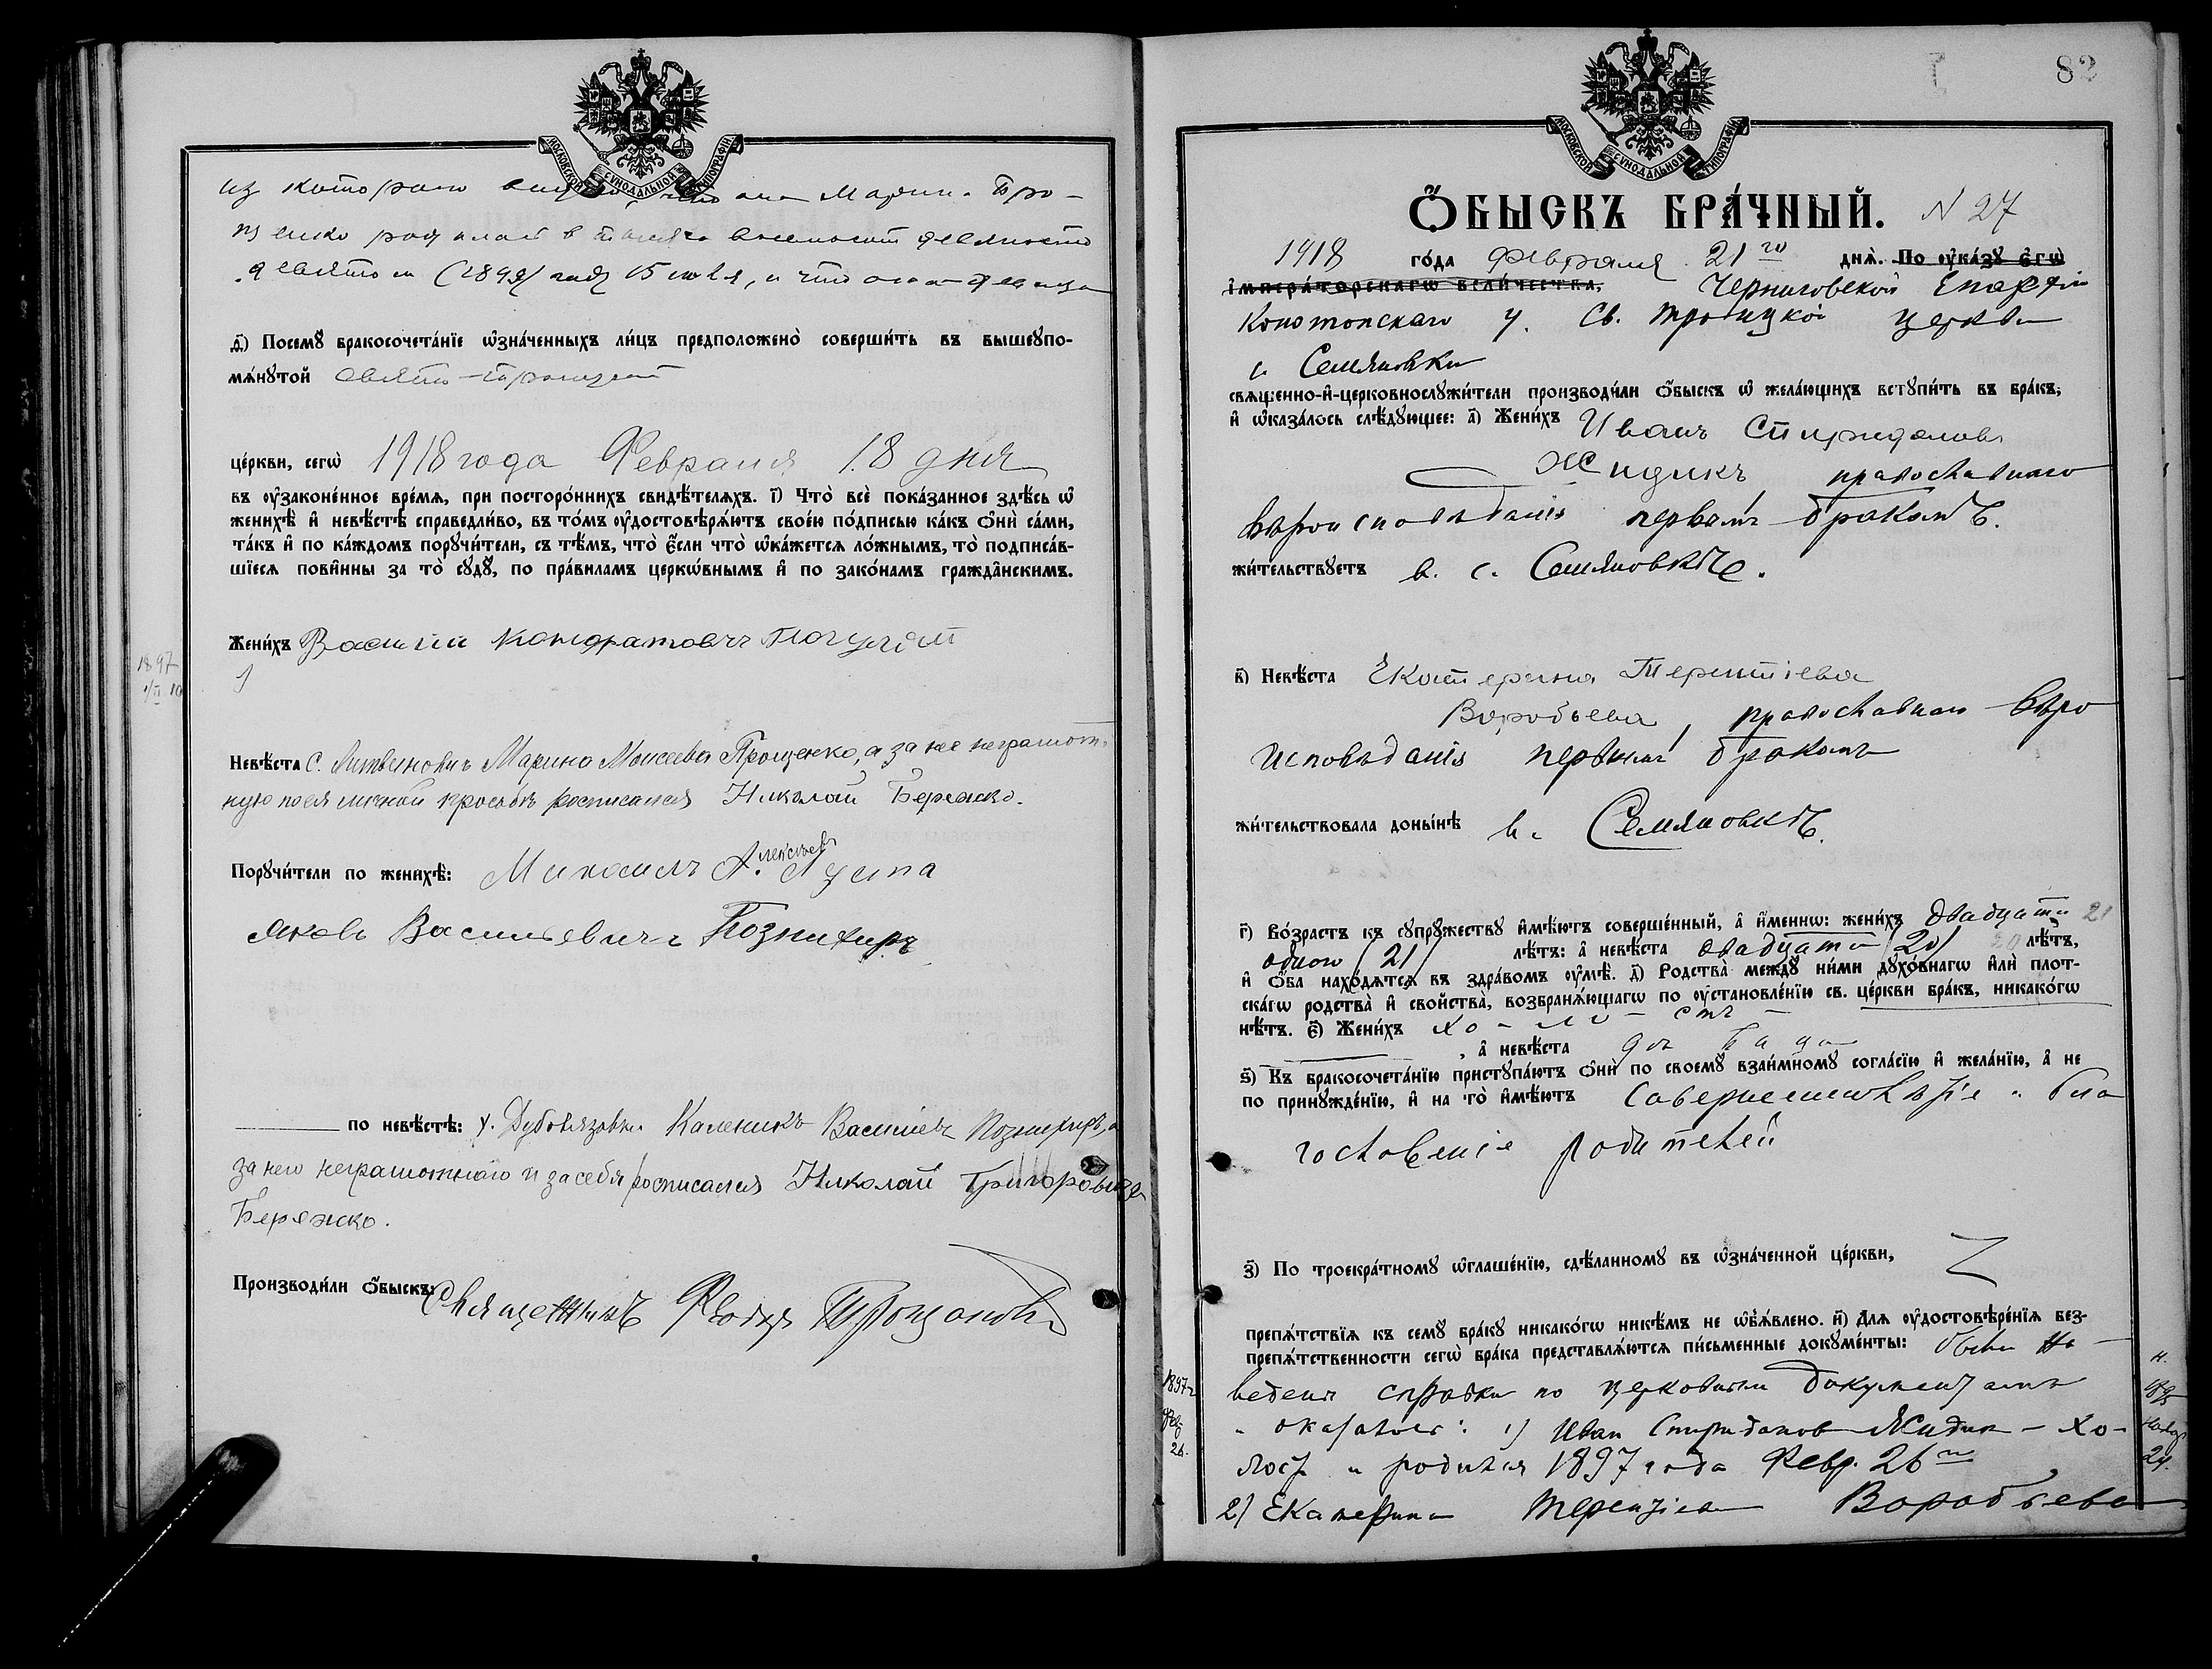 МОСКОВСКОЙ СѴНОДАЛЬНОЙ ТИПОГРАФІИ
из котораго видно, что она Марина Про-
щенко родилась в тысяча восемьсот девяносто
девятом (1899) году 15 июля, и что она девица
д҃) Посемꙋ̀ бракосочета́нїе ѡ҆зна́ченныхъ ли́цъ предположено̀ соверши́ть въ вышеꙋпо-
мѧ́нꙋтой Свято-Троицкой
це́ркви, сегѡ̀ 1918 года Февраля 18 дня
въ ᲂу҆законе́нное вре́мѧ, при посторо́ннихъ свидѣ́телѧхъ. і҃) Что̀ всѐ пока́занное здѣ́сь ѡ҆
женихѣ̀ и҆ невѣ́стѣ справедли́во, въ то́мъ ᲂу҆достовѣрѧ́ютъ свое́ю по́дписью ка́къ ѻ҆нѝ са́ми,
та́къ и҆ по ка́ждомъ порꙋчи́тели, съ тѣ́мъ, что̀ є҆́сли что̀ ѡ҆ка́жетсѧ ло́жнымъ, то̀ подписа́в-
шїесѧ пови́нны за то̀ сꙋдꙋ̀, по пра́виламъ церкѡ́внымъ и҆ по зако́намъ гражда́нскимъ.
1897
Жени́хъ Василій Кондратовъ
Невѣ́ста С. Литвиновичъ Марина Моисеева Прощенко, а за нее неграмот-
ную по ея личной просьбѣ росписался Николай Бережко.
Порꙋчи́тели по женихѣ̀: Михаилъ А. Алексѣев Лузина
Яковъ Васильевичъ Познихиръ
по невѣ́стѣ: х. Дубовязовки Каленикъ Васильевъ Познихирь, а
за него неграмотнаго и за себя росписался Николай Григоровичъ
Бережко.
Производи́ли ѻ҆́быскъ: Священникъ Ѳеодоръ
82
МОСКОВСКОЙ СѴНОДАЛЬНОЙ ТИПОГРАФІИ
Ѻ҆́БЫСКЪ БРА́ЧНЫЙ. N 27
1918 го́да Февраля 21го днѧ̀. По ᲂу҆ка́зꙋ є҆гѡ̀
і҆мпера́торскагѡ вели́чества, Черниговской Епархіи
Конотопскаго у. Св. Троицкой церкви
с. Семяновки
свѧще́нно-и҆-церковнослꙋжи́тели производи́ли ѻ҆́быскъ ѡ҆ жела́ющихъ встꙋпи́ть въ бра́къ,
и҆ ѡ҆каза́лось слѣ́дꙋющее: а҃) Жени́хъ Иванъ Спиридоновъ
Жидикъ православнаго
вѣроисповѣданія первымъ бракомъ.
жи́тельствꙋетъ в. с. Семяновкѣ.
в҃) Невѣ́ста Екатерина Терентіева
Воробьева, православнаго вѣро
исповѣданія первымъ бракомъ
жи́тельствовала донынѣ̀ в. Семяновкѣ.
г҃) Во́зрастъ къ сꙋпрꙋ́жествꙋ и҆мѣ́ютъ соверше́нный, а҆ и҆́меннѡ: жени́хъ двадцати 21
одного (21) лѣ́тъ: а҆ невѣ́ста двадцати (20) 20 лѣ́тъ,
и҆ ѻ҆́ба нахо́дѧтсѧ въ здра́вомъ ᲂу҆мѣ̀. д҃) Родства̀ междꙋ̀ ни́ми дꙋхо́внагѡ и҆лѝ плот-
ска́гѡ родства̀ и҆ свойства̀, возбранѧ́ющагѡ по ᲂу҆становле́нїю св. це́ркви бра́къ, никако́гѡ
нѣ́тъ. є҃) Жени́хъ хо-ло-стъ
, а҆ невѣ́ста дѣвица
ѕ҃) Къ бракосочета́нїю пристꙋпа́ютъ ѻ҆нѝ по своемꙋ̀ взаи́мномꙋ согла́сїю и҆ жела́нїю, а҆ не
по принꙋжде́нїю, и҆ на то̀ и҆мѣ́ютъ совершеннолѣтіе и бла
гословеніе родителей
з҃) По троекра́тномꙋ ѡ҆глаше́нїю, сдѣ́ланномꙋ въ ѡ҆зна́ченной це́ркви,
препѧ́тствїѧ къ семꙋ̀ бра́кꙋ никако́гѡ никѣ́мъ не ѡ҆б̾ѧ́влено. и҃) Длѧ ᲂу҆достовѣре́нїѧ без-
препѧ́тственности сегѡ̀ бра́ка представлѧ́ютсѧ пи́сьменные докꙋме́нты: были на-
ведены справки по церковнымъ документамъ
и оказалось: 1) Иван Спиридонов Жидик - хо-
лост и родился 1897 года Февр. 26го
2) Екатерина Терентіева Воробьева
1897 г.
Фев.
26.
24.